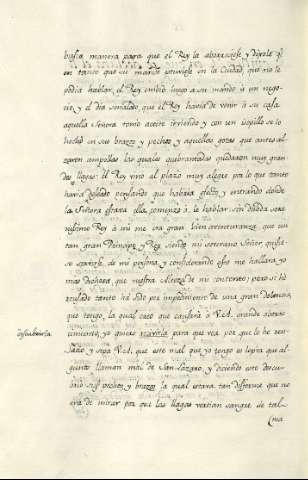 basta manera para que el Rey la aborreciese, y dijole q̃
en tanto que su marido estuviese en la Ciudad, que no le
podia hablar, el Rey embió luego a su marido à un nego-
cio, y el dia señalado, que el Rey havia de venir à su casa
aquella Señora tomò aceite irviendo y con un isopillo se lo
hechó en sus brazos y pechos y aquellas gotas que antes al-
zaron ampollas las quales quebrantadas quedaron muy gran-
des llagas: el Rey vino al plazo muy alegre por lo que tanto
havia deseado pensando que habria efecto, y entrando donde
la Señora estava ella comenzo à le hablar sin dubda sere-
nisimo Rey à mi me era gran bienaventuranza que un
tan gran Principe y Rey siendo mi soverano Señor quisie-
se servirse de mi persona y considerando esto me hallara yo
mas dichosa que vuestra Alteza de mi contento; pero si hè
reusado tanto hà sido por impedimento de una gran dolencia,
que tengo, la qual creo que causarà à V.A. grande aborre-
cimiento, yo quiero para que vea por que lo he reu-
descubrirla
sado y sepa V.A. que este mal que yo tengo es lepra que al-
gunos llaman mal de San Lazaro, y diciendo esto descu-
briò sus pechos y brazos la qual estava tan disforme que no
era de mirar por que las llagas vertian sangre de tal
(ma